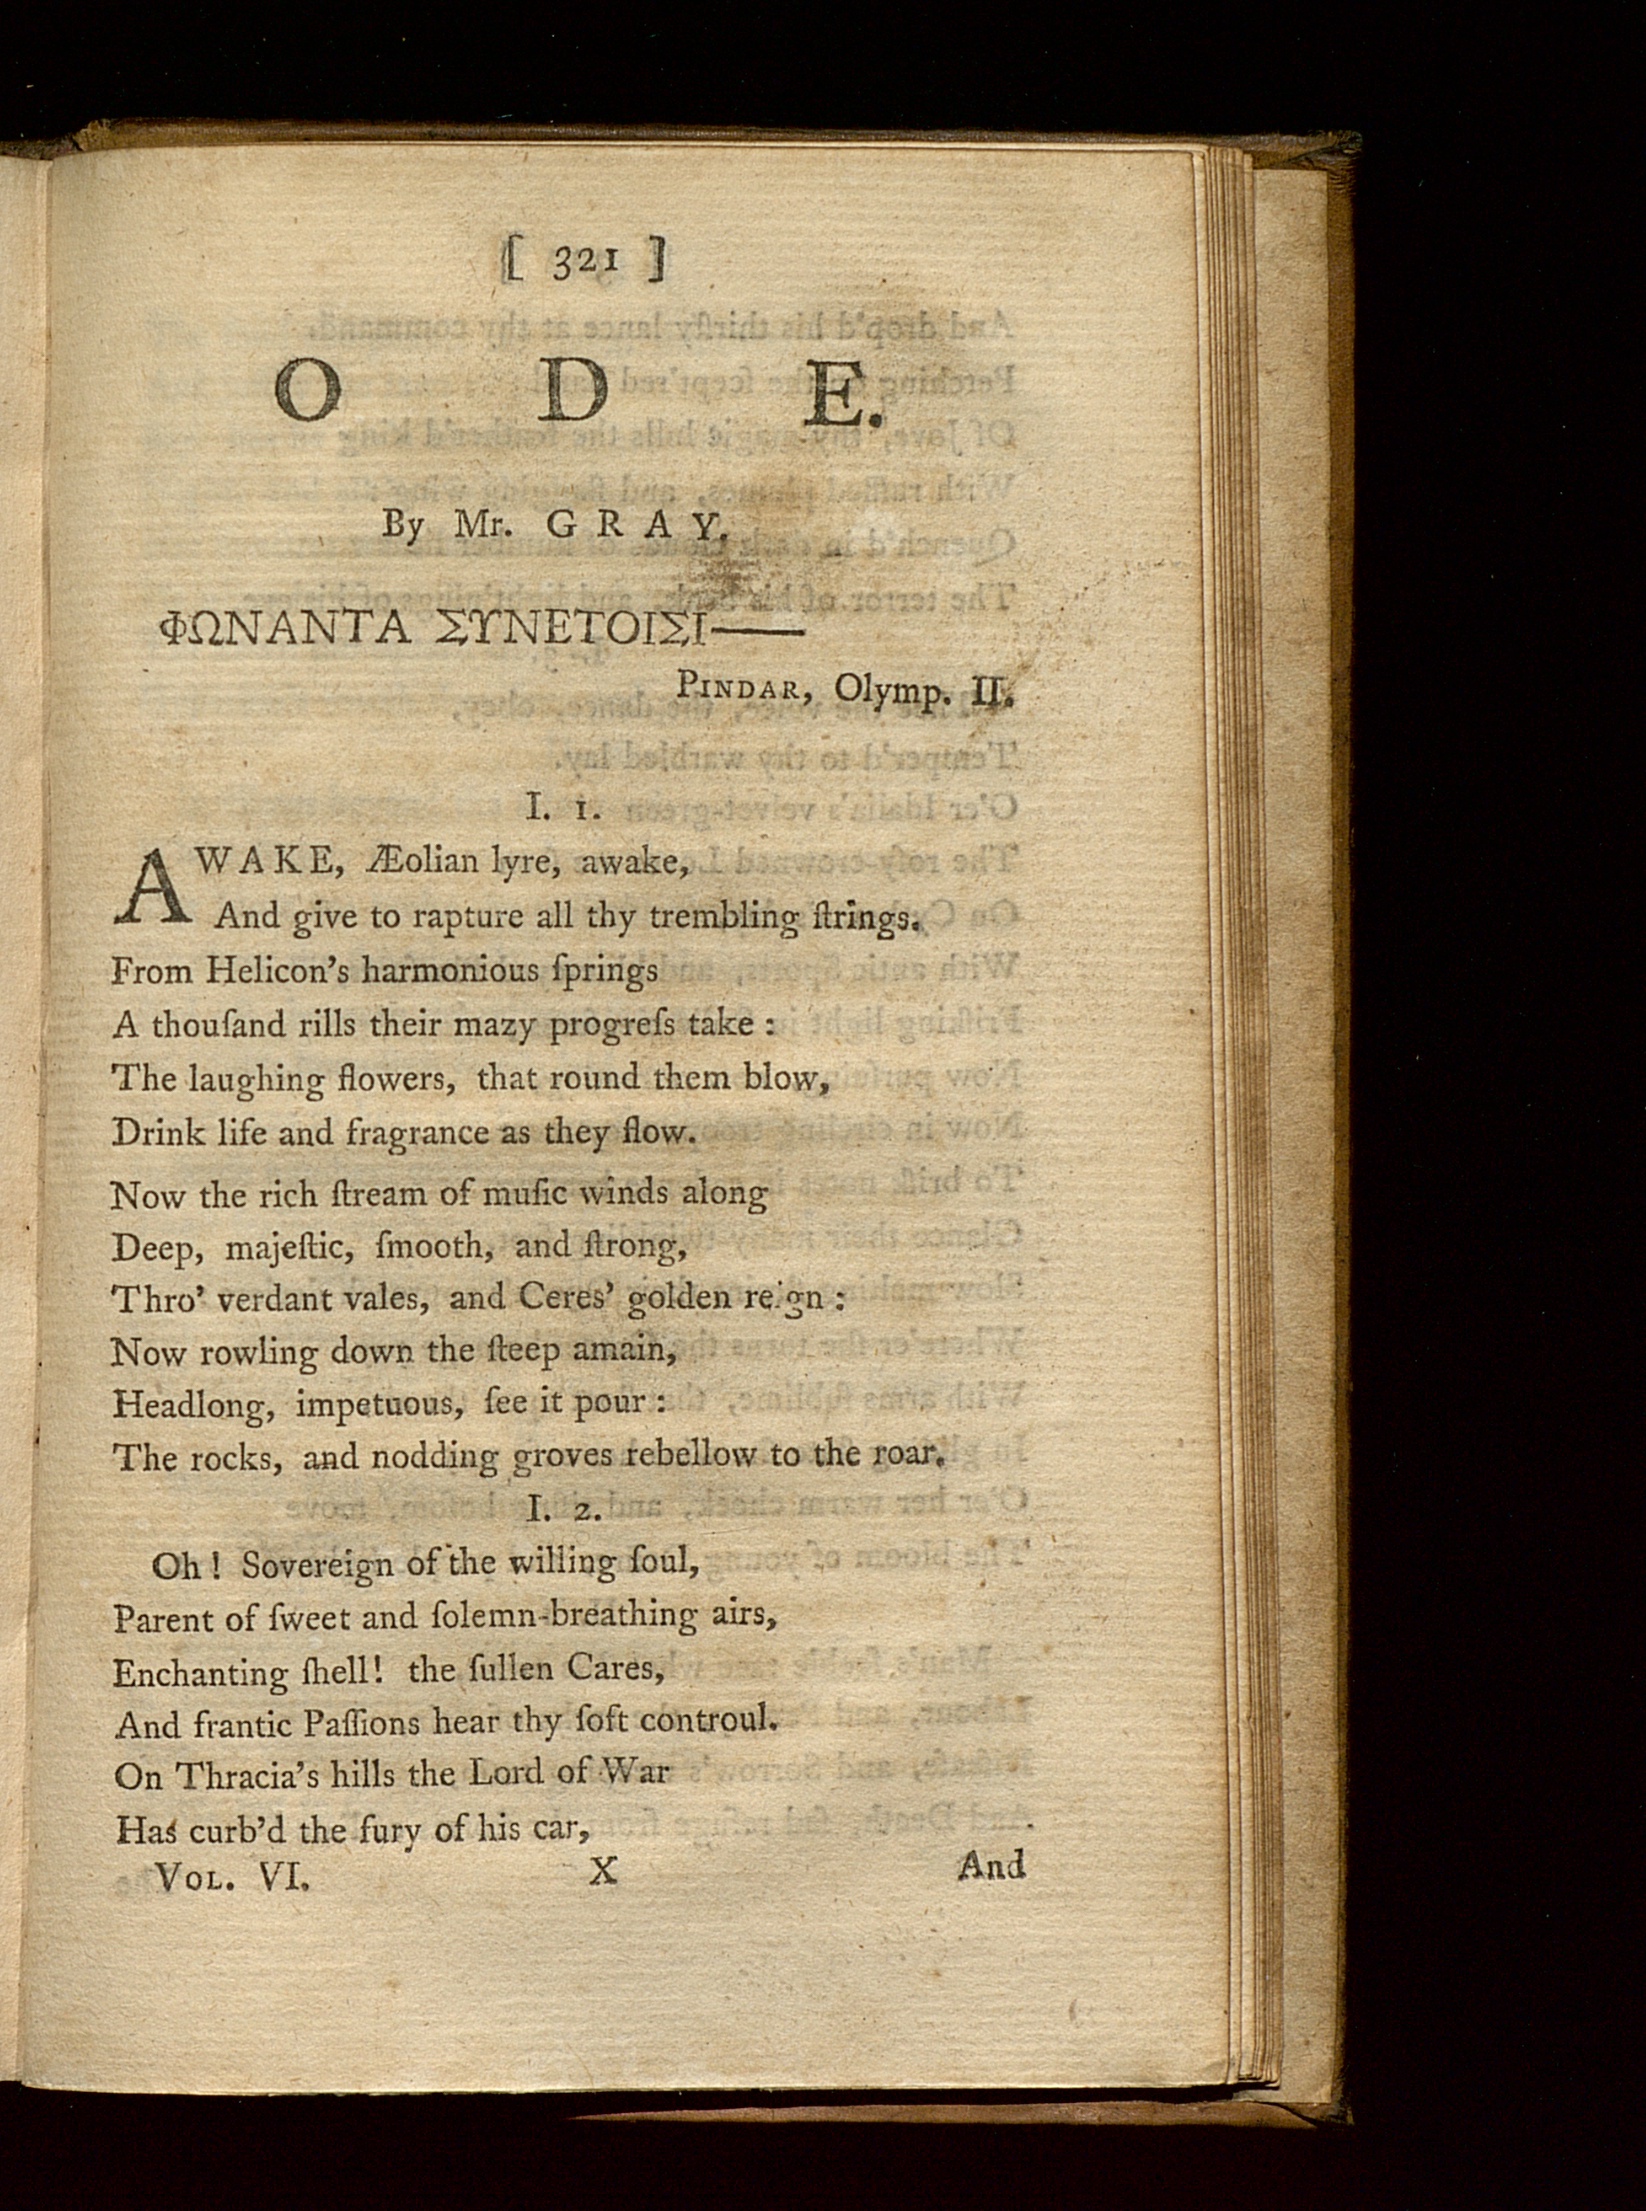 [ 321 ]
O D E.
By Mr. G R A Y.
ΦΩΝΑΝΤΑ ΣΥΝΕΤΟΙΣΙ——
PINDAR, Olymp. II.
I. 1.
AWAKE, Æolian lyre, awake,
And give to rapture all thy trembling ſtrings.
From Helicon's harmonious ſprings
A thouſand rills their mazy progreſs take :
The laughing flowers, that round them blow,
Drink life and fragrance as they flow.
Now the rich ſtream of muſic winds along
Deep, majeſtic, ſmooth, and ſtrong,
Thro' verdant vales, and Ceres' golden reign :
Now rowling down the ſteep amain,
Headlong, impetuous, ſee it pour :
The rocks, and nodding groves rebellow to the roar.
I. 2.
Oh ! Sovereign of the willing ſoul,
Parent of ſweet and ſolemn-breathing airs,
Enchanting ſhell! the ſullen Cares,
And frantic Paſſions hear thy ſoft controul.
On Thracia's hills the Lord of War
Has curb'd the fury of his car,
VOL. VI. X And